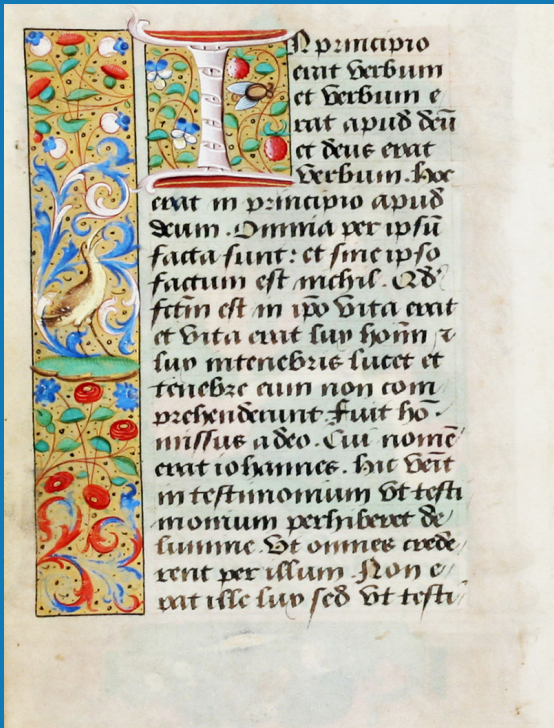 IN principio
erat verbum
et verbum e
rat apud deū
et deus erat
verbum. Hoc
erat in principio apud
deum. Omnia per ipsū
facta sunt: et sine ipso
factum est nichil. Qd
fctm est in ipo vita erat
et vita erat lux homī ⁊
lux intenebris lucet et
tenebre eum non com
prehenderunt Fuit hō
missus adeo. Cui nomē
erat iohannes. hic veīt
in testimonium vt testi
monium perhiberet de
lumine. Vt omnes crede
rent per illum. Non e
rat ille lux sed vt testi